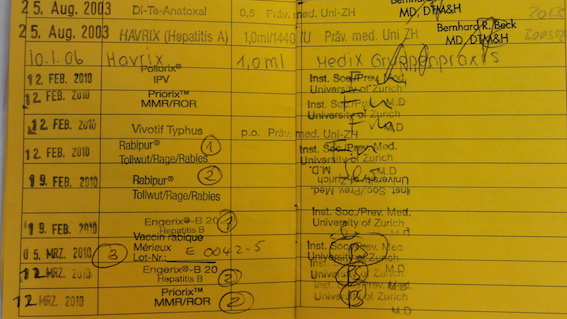 25. Aug. 2003 Di-Te-Anatoxal 0,5 Präv. med. Uni-ZH MD, DTM&H
25. Aug. 2003 HAVRIX (Hepatitis A) 1,0ml/1440 IU Präv. med. Uni ZH Bernhard R. Beck MD, DTM&H
10.1.06 Havrix 1,0 ml Medix Gruppenpraxis
12. FEB. 2010 Poliorix® IPV Inst. Soc./Prev. Med. University of Zurich
12. FEB. 2010 Priorix™ MMR/ROR Inst. Soc./Prev. Med. University of Zurich M.D
12. FEB. 2010 Vivotif Typhus p.o. Präv. med. Uni-ZH M.D
12 FEB. 2010 Rabipur® 1 Tollwut/Rage/Rabies Inst. Soc./Prev. Med. University of Zurich
19. FEB. 2010 Rabipur® 2 Tollwut/Rage/Rabies Inst. Soc./Prev. Med. University of Zurich M.D.
19. FEB. 2010 Engerix®-B 20 1 Hepatitis B Inst. Soc./Prev. Med. University of Zurich M.D
05. MRZ. 2010 3 Vaccin rabique Mérieux Lot-Nr.: E0042-5 Inst. Soc./Prev. Med. University of Zurich
12 MRZ. 2010 Engerix®-B 20 2 Hepatitis B Inst. Soc./Prev. Med. University of Zurich M.D
12 MRZ. 2010 Priorix™ MMR/ROR 2 University of Zurich M.D